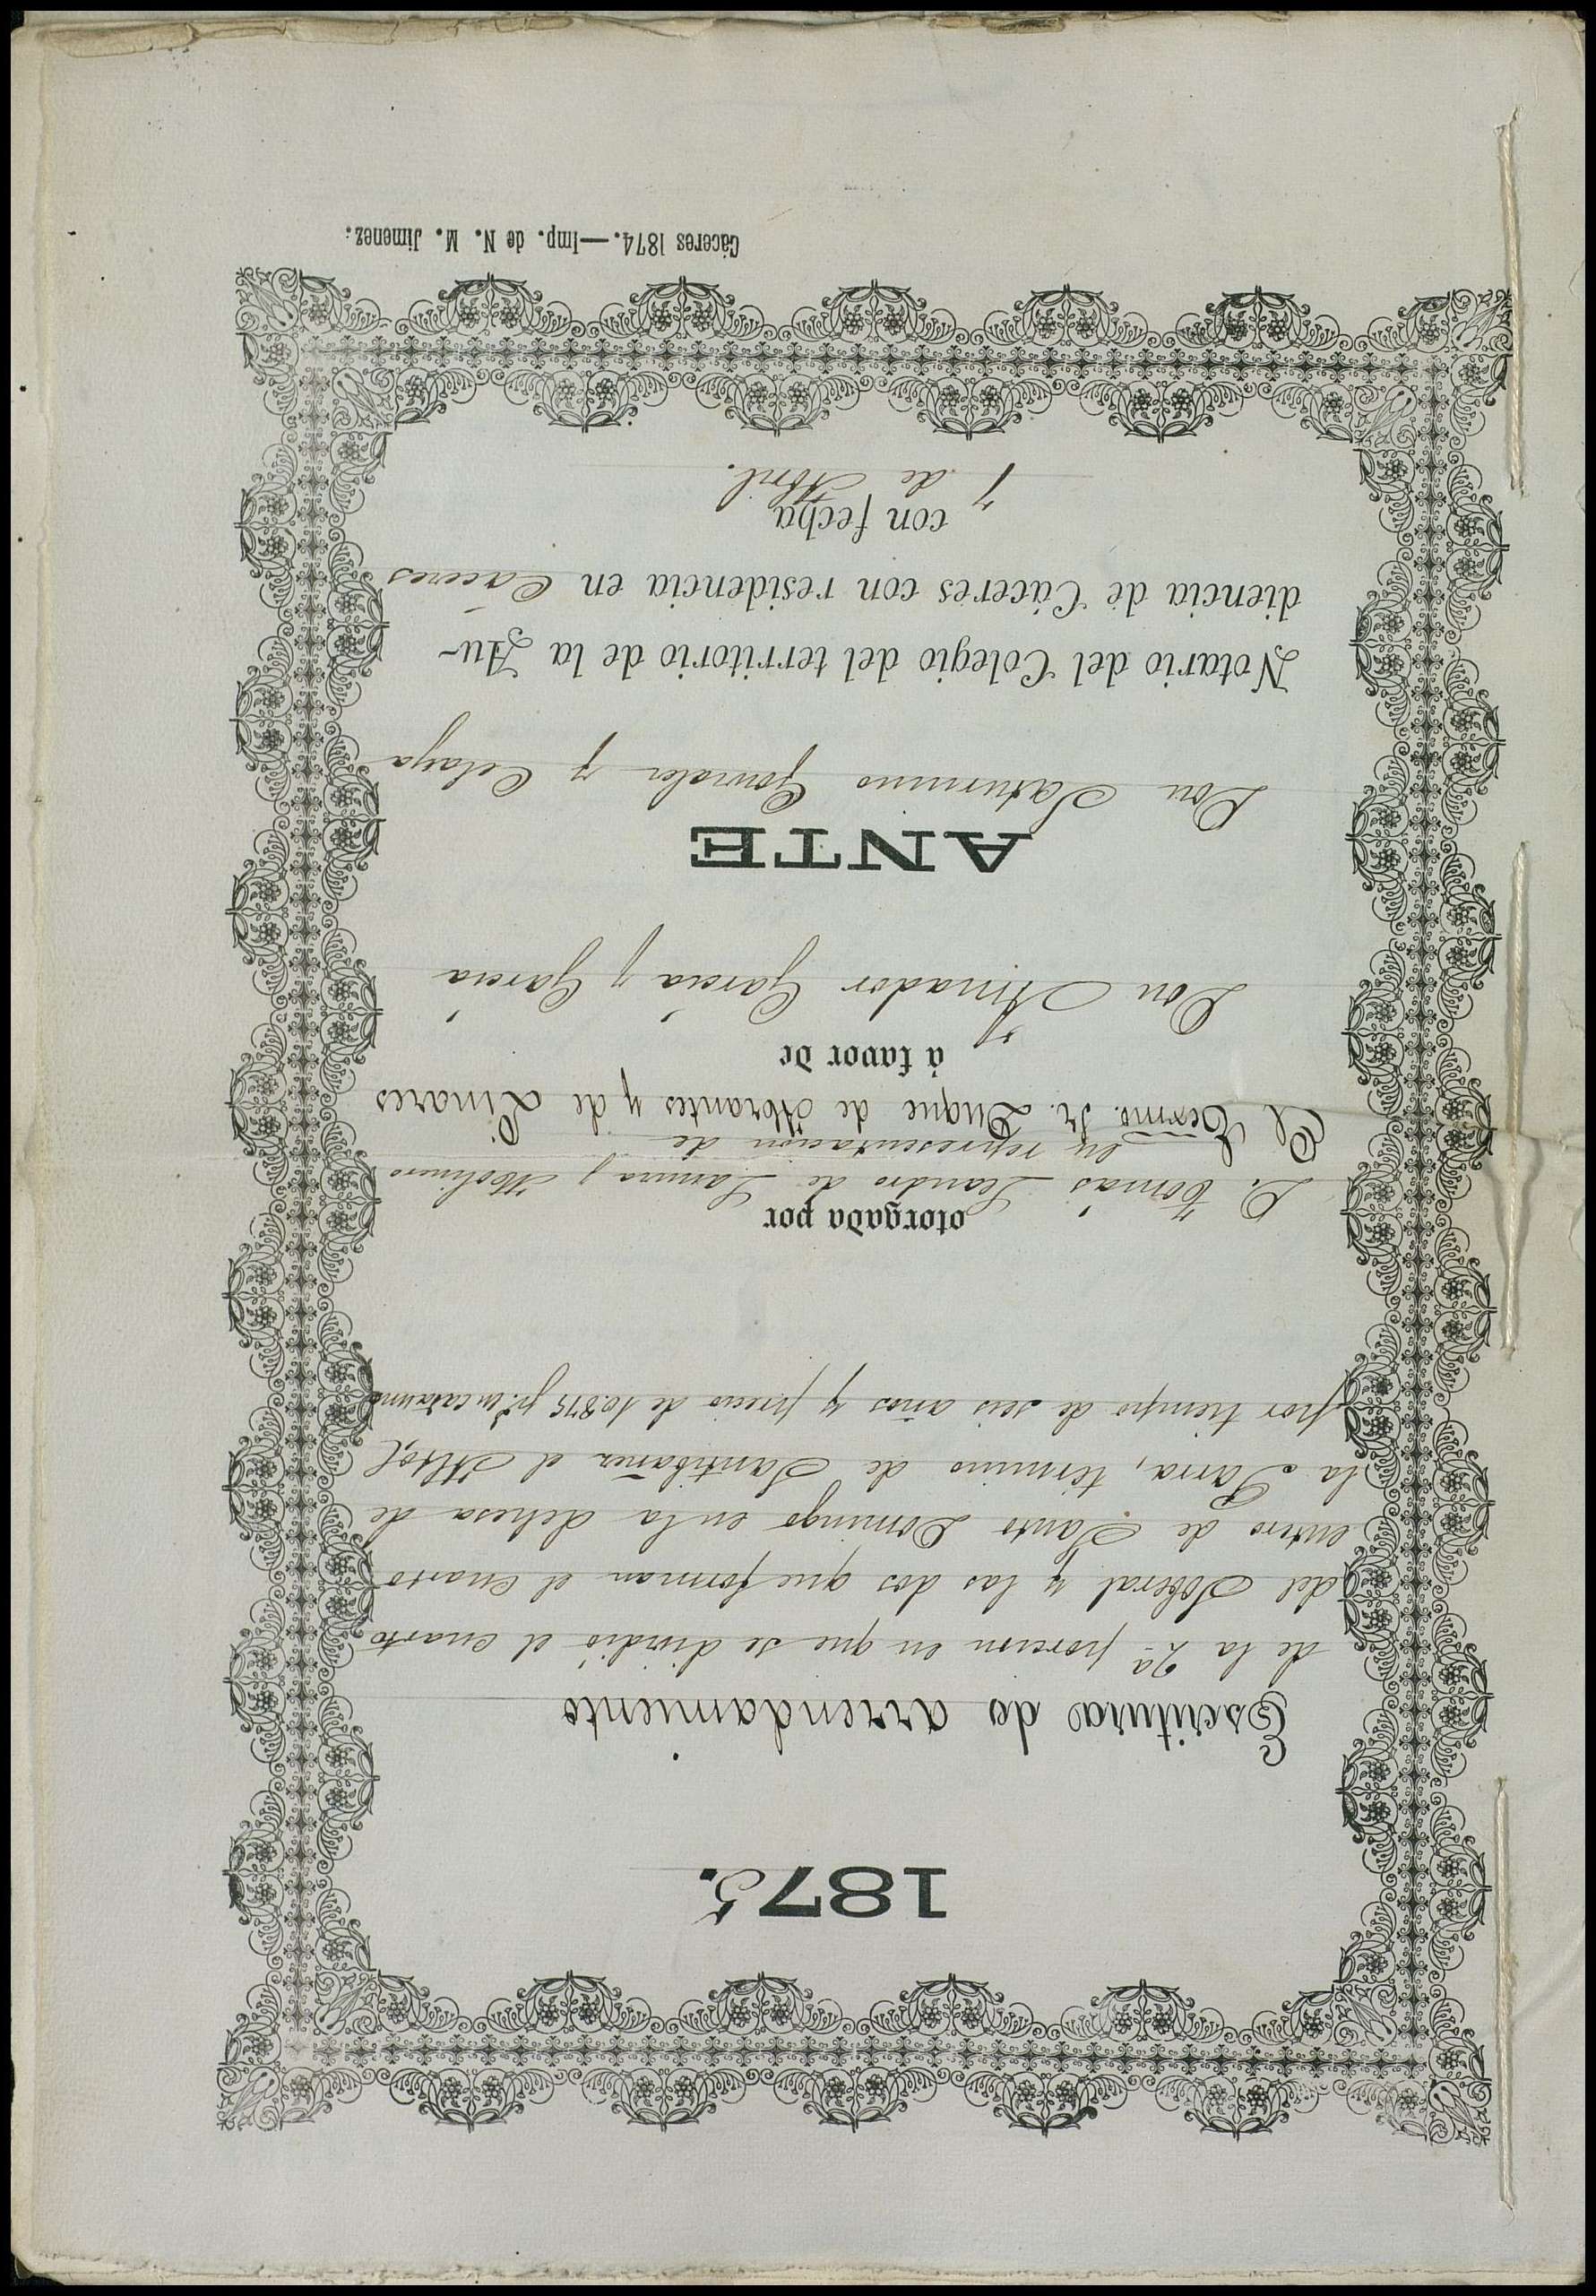 1875.
Escritura de arrendamiento
de la 2ª porcion en que se dividió el cuarto
del Moheral y las dos que forman el cuarto
entero de Santo Domingo en la dehesa de
la Parra, término de Santibañez el Alto
por tiempo de seis años y precio de 10.875 p.s en cada uno
otorgada por
D. Tomás Leandro de Lamora y Molinero
en representacion de
El Excmo. Sr. Duque de Abrantes y de Linares
á favor de
Don Amador Garcia y Garcia
ANTE
Don Saturnino Gonzalez y Celaya
Notario del Colegio del territorio de la Au-
diencia de Cáceres con residencia en Cáceres
con fecha
7 de Abril.
Cáceres 1874.—Imp. de N. M. Jimenez.